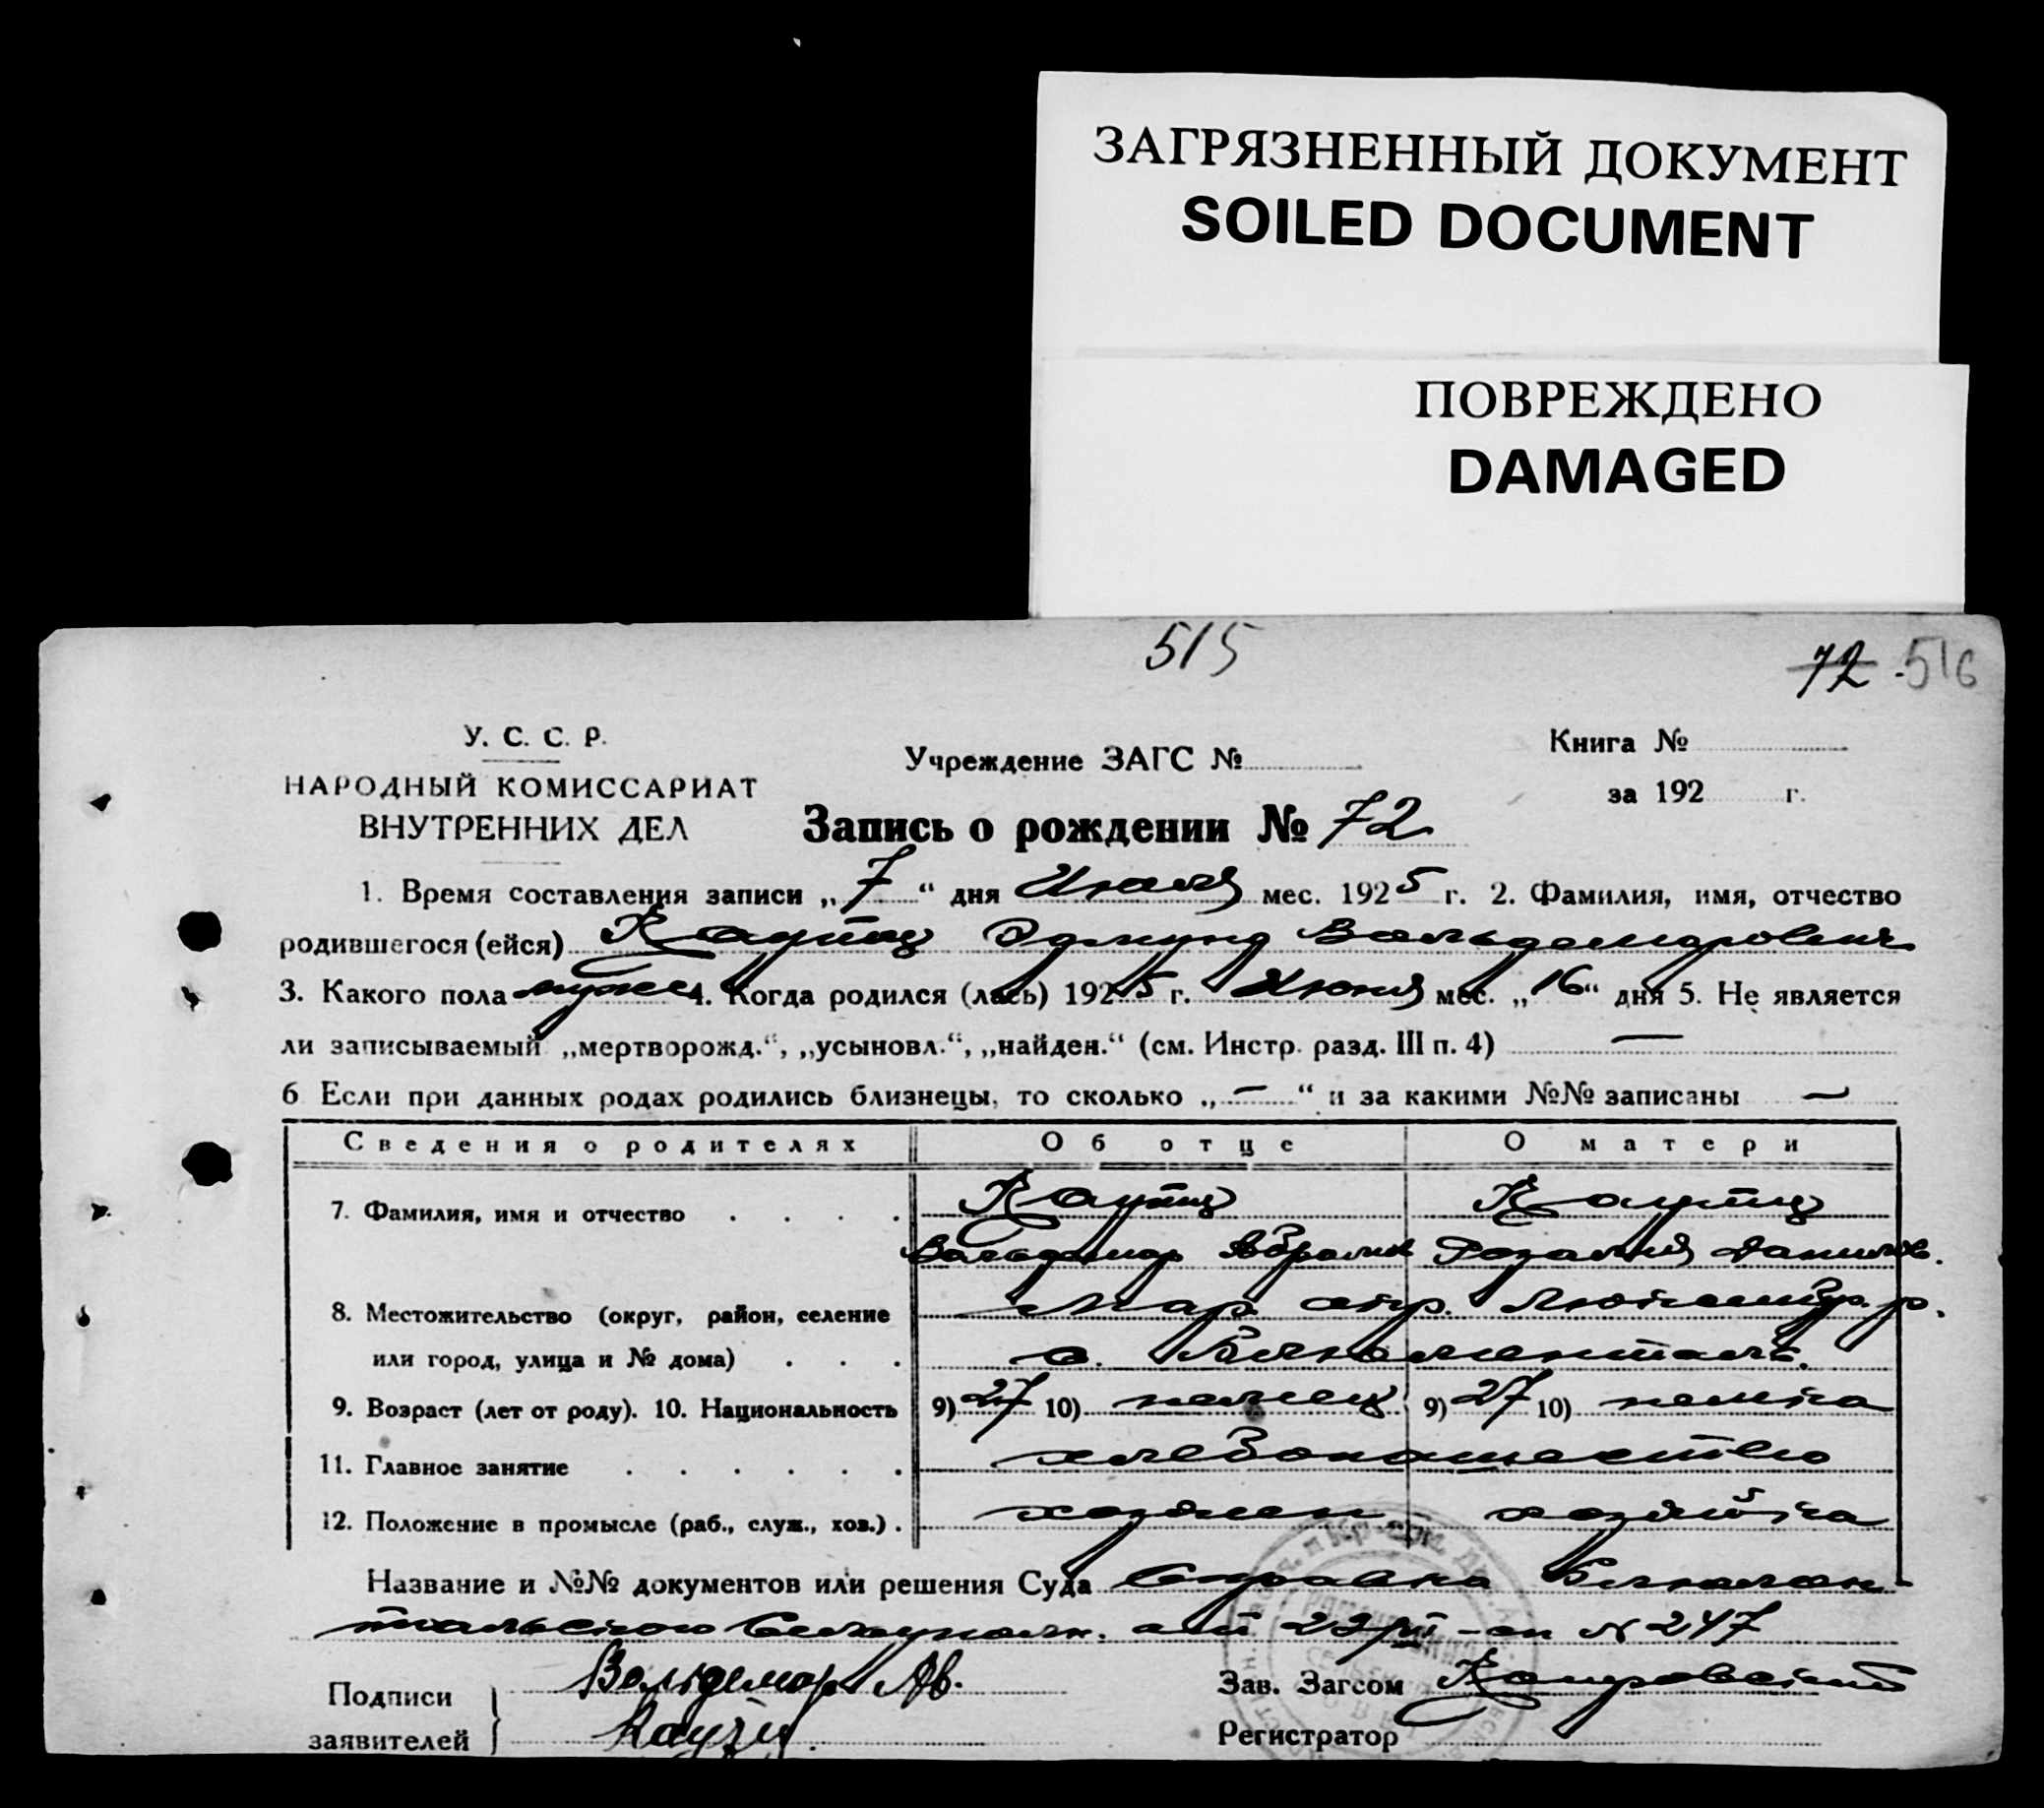 ЗАГРЯЗНЕННЫЙ ДОКУМЕНТ
SOILED DOCUMENT
ПОВРЕЖДЕНО
DAMAGED
515
72 516
У. С. С. Р.
НАРОДНЫЙ КОМИССАРИАТ
ВНУТРЕННИХ ДЕЛ
Учреждение ЗАГС №
Книга №
за 192 г.
Запись о рождении № 72
1. Время составления записи „7“ дня Июля мес. 1925 г. 2. Фамилия, имя, отчество
родившегося (ейся) Каутц Эдмунд Вольдемарович
3. Какого пола муже 4. Когда родился (лась) 1925 г. Июня мес. „16“ дня 5. Не является
ли записываемый „мертворожд.“, „усыновл.“, „найден.“ (см. Инстр. разд. III п. 4) —
6 Если при данных родах родились близнецы, то сколько „—“ и за какими №№ записаны —
Сведения о родителях Об отце О матери
7. Фамилия, имя и отчество Каутц Каутц
Вольдемар Абрамов Розалия Данилов.
8. Местожительство (округ, район, селение Мар. окр. Люксембур. р.
или город, улица и № дома) с. Блюменталь.
9. Возраст (лет от роду). 10. Национальность 9) 27 10) немец 9) 27 10) немка
11. Главное занятие хлебопашество
12. Положение в промысле (раб., служ., хоз.) хозяин хозяйка
Название и №№ документов или решения Суда Справка Блюмен-
тальского от № 247
Подписи Вольдемар Аб. Зав. Загсом
заявителей Каутц. Регистратор